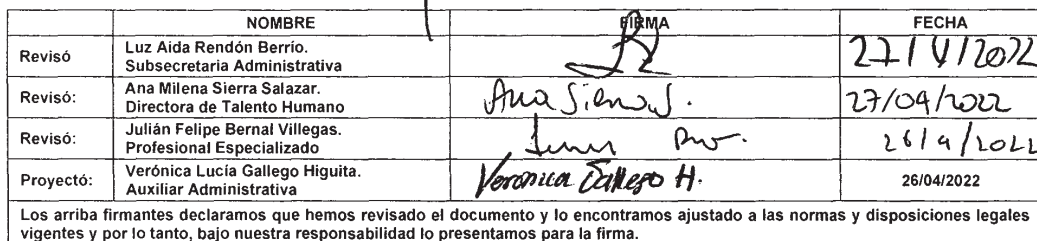 NOMBRE FIRMA FECHA
Revisó Luz Aida Rendón Berrío.
Subsecretaria Administrativa 27/4/2022
Revisó: Ana Milena Sierra Salazar.
Directora de Talento Humano Ana Sierra S. 27/04/2022
Revisó: Julián Felipe Bernal Villegas.
Profesional Especializado 26/4/2022
Proyectó: Verónica Lucía Gallego Higuita.
Auxiliar Administrativa Verónica Gallego H. 26/04/2022
Los arriba firmantes declaramos que hemos revisado el documento y lo encontramos ajustado a las normas y disposiciones legales
vigentes y por lo tanto, bajo nuestra responsabilidad lo presentamos para la firma.